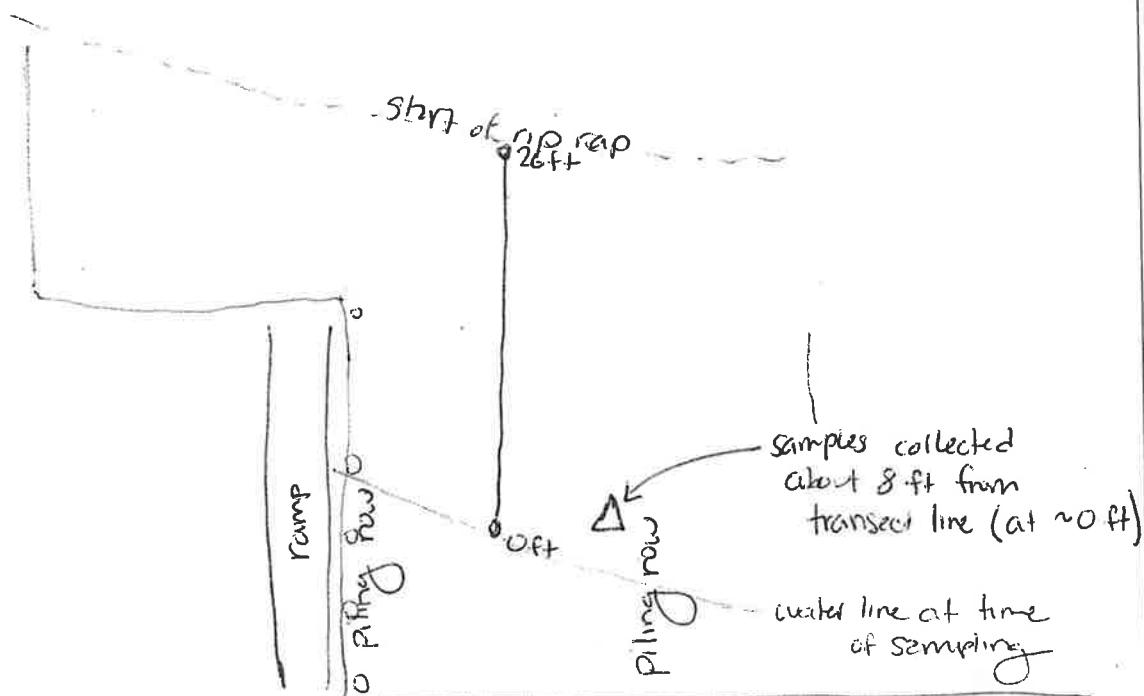 start of rip rap
26ft
ramp
piling row
0ft
piling row
samples collected
about 8 ft from
transect line (at ~0 ft)
water line at time
of sampling